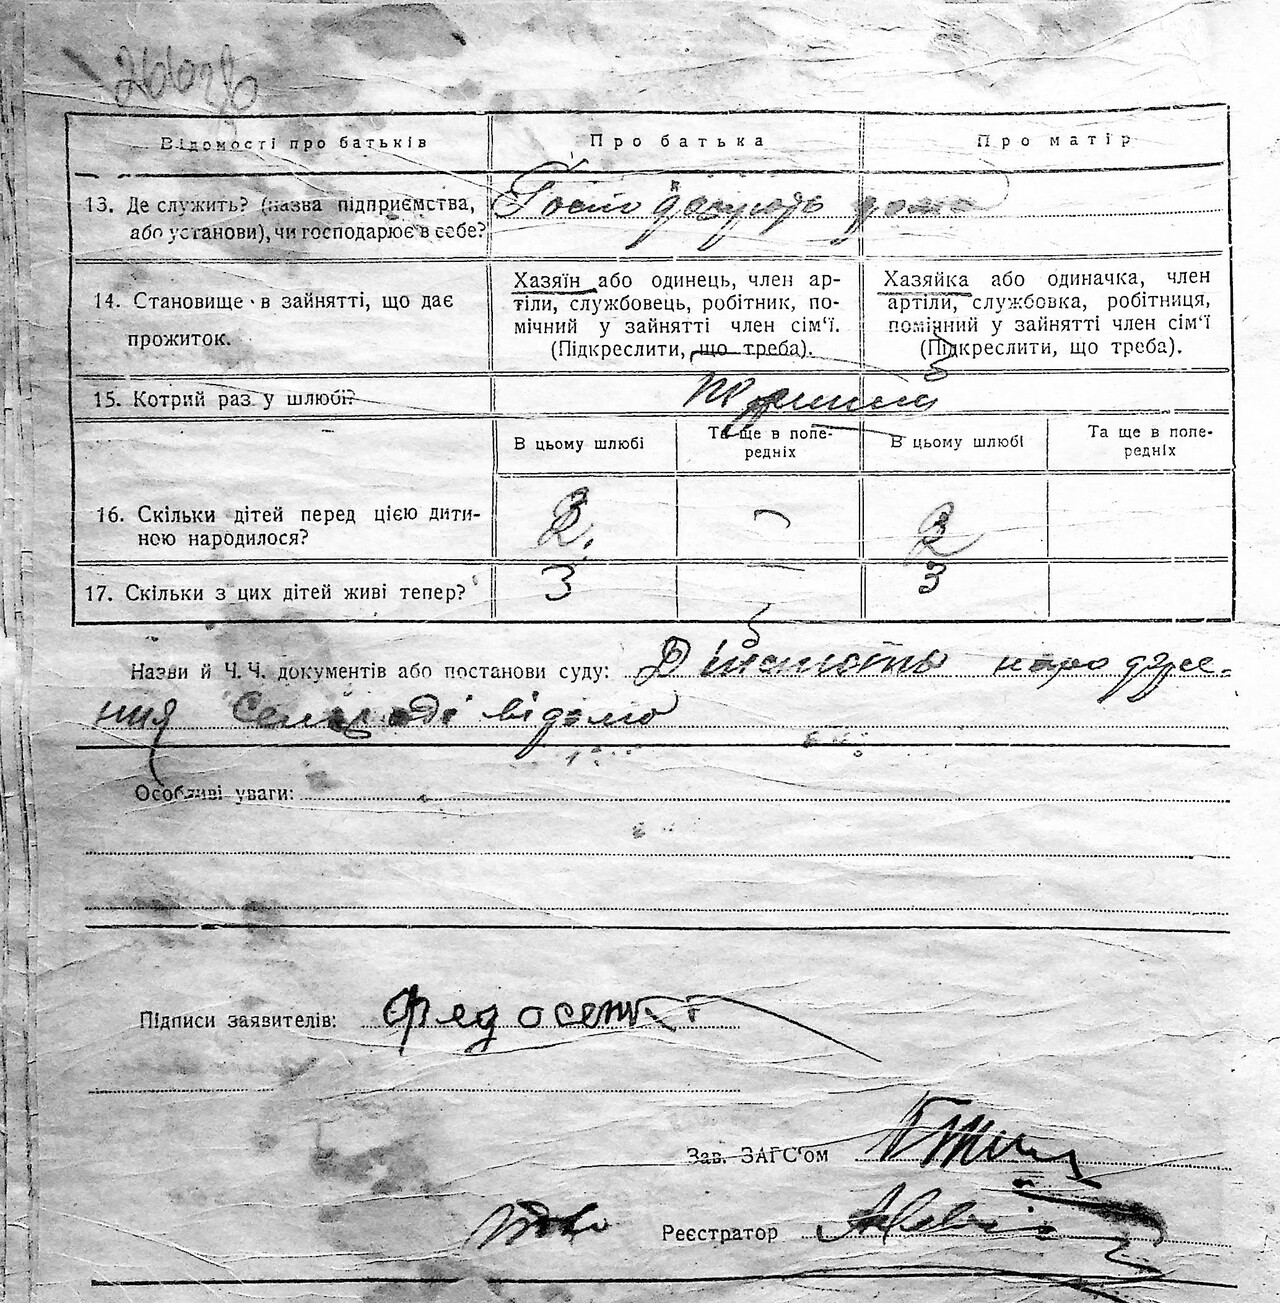 Відомості про батьків
Про батька
Про матір
13. Де служить? (назва підприємства,
або установи), чи господарює в себе?
дома
14. Становище в зайнятті, що дає
прожиток.
Хазяїн або одинець, член ар-
тіли, службовець, робітник, по-
мічний у зайнятті член сім'ї.
(Підкреслити, що треба).
Хазяйка або одиначка, член
артіли, службовка, робітниця,
помічний у зайнятті член сім'ї
(Підкреслити, що треба).
15. Котрий раз у шлюбі?
В цьому шлюбі
Та ще в попе-
редніх
В цьому шлюбі
Та ще в попе-
редніх
16. Скільки дітей перед цією дити-
ною народилося?
17. Скільки з цих дітей живі тепер?
3
—
3
Назви й Ч. Ч. документів або постанови суду:
відомо
Особливі уваги:
Підписи заявителів: Федосенко
Зав. ЗАГС'ом
Реєстратор